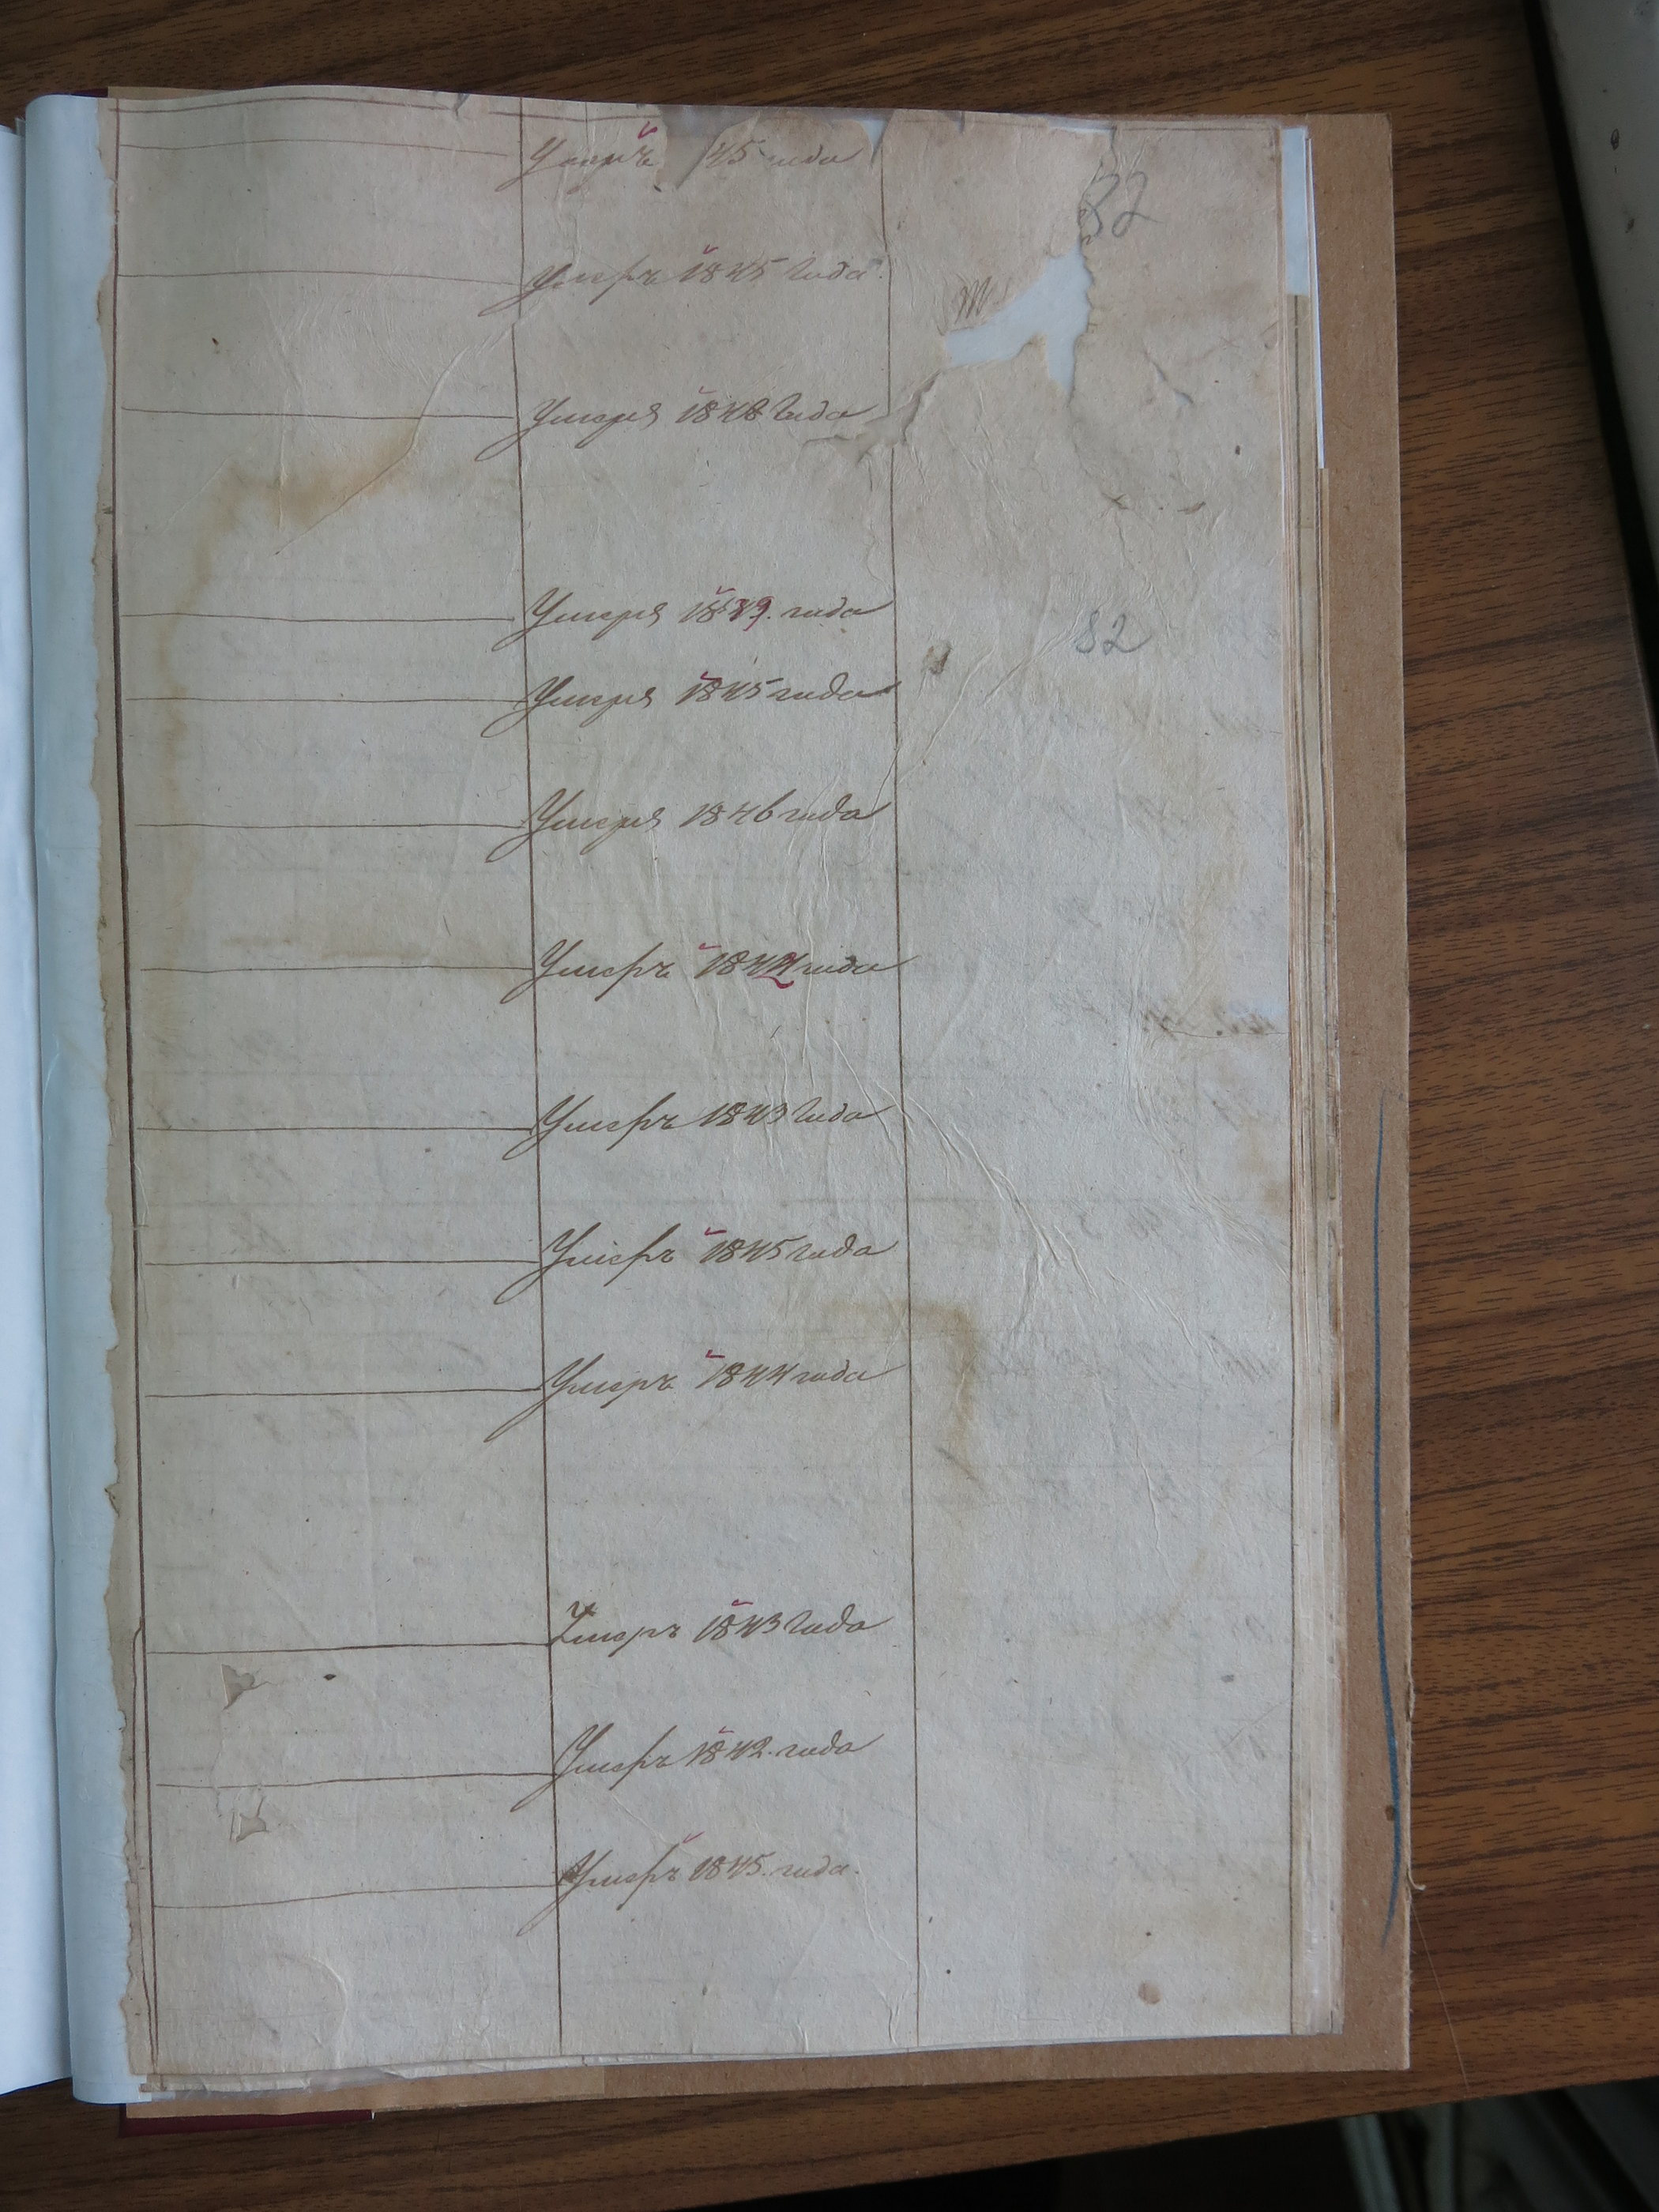 Умеръ 45 года
82
Умеръ 1845 года.
Умеръ 1848 года
Умеръ 1839. года
82
Умеръ 1845 года
Умеръ 1846 года
Умеръ 1844 года
Умеръ 1843 года
Умеръ 1845 года
Умеръ 1844 года
Умеръ 1843 года
Умеръ 1842. года
Умеръ 1845. года.